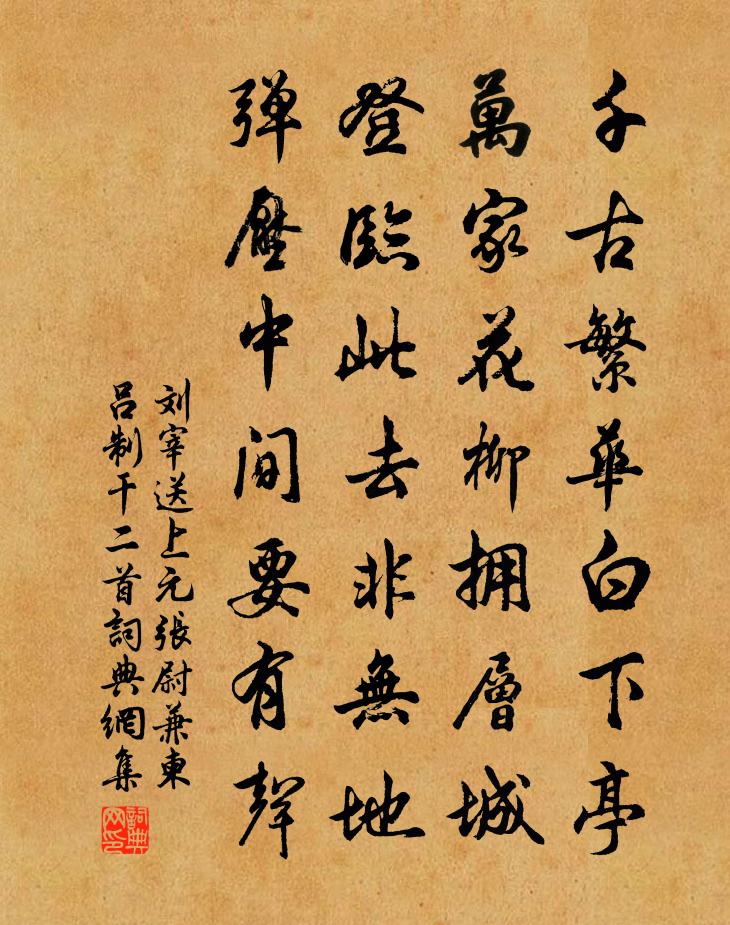 千古繁華白下亭
萬家花柳拥層城
登臨此去非無地
弹壓中間要有聲
刘宰送上元張尉兼東
吕制干二首詞典網集
詞典网印